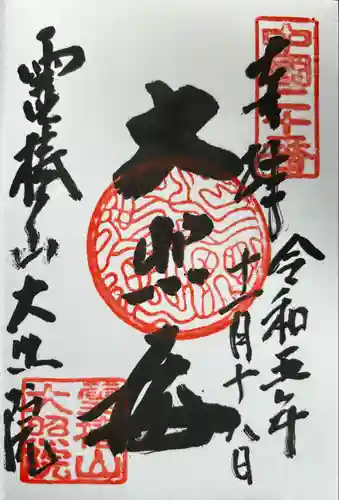 中國二十番
奉拝
令和五年
十一月十八日
大悲殿
靈椿山大照院
靈椿山
大照院